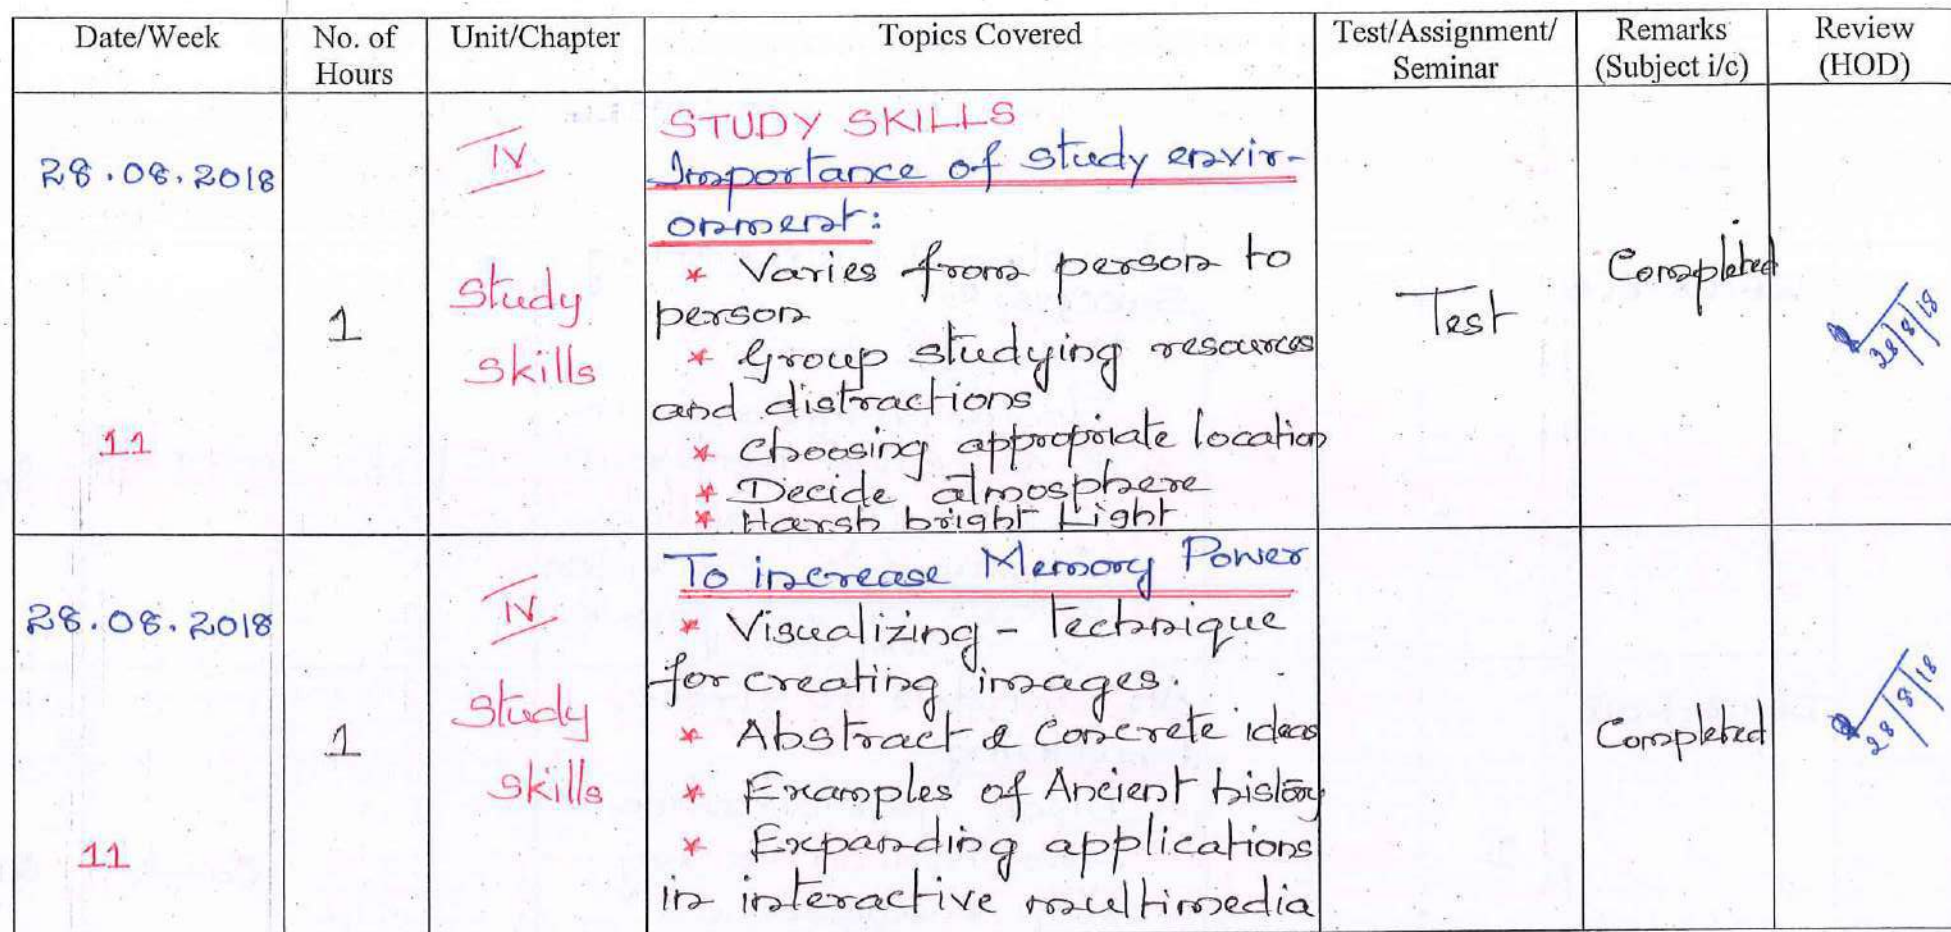 Date/Week
No. of
Hours
Unit/Chapter
Topics Covered
Test/Assignment/
Seminar
Remarks
(Subject i/c)
Review
(HOD)
28.08.2018
11
1
IV
Study
Skills
STUDY SKILLS
Importance of study envir-
onment:
* Varies from person to
person
* Group studying resources
and distractions
* Choosing appropriate location
* Decide atmosphere
* Harsh bright Light
Test
Completed
28/8/18
28.08.2018
11
1
IV
Study
Skills
To increase Memory Power
* Visualizing - Technique
for creating images.
* Abstract & Concrete ideas
* Examples of Ancient history
* Expanding applications
in interactive multimedia
Completed
28/8/18